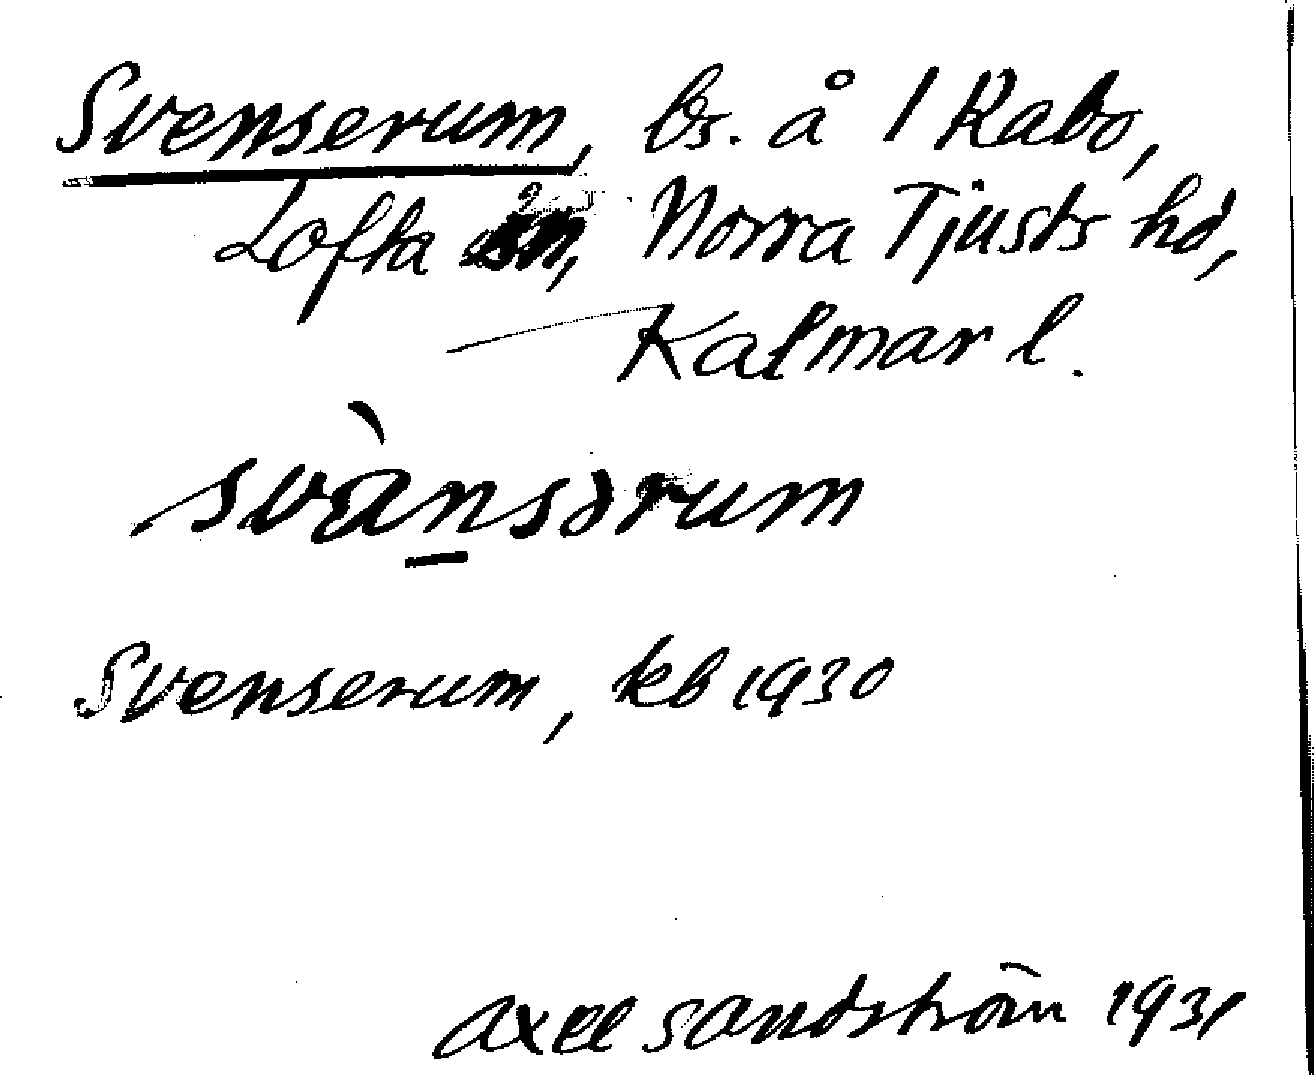 Svenserum, bs. å 1 Rabo,
Lofta sn, Norra Tjusts hd,
Kalmar l.
svànsərum
Svenserum, kb 1930
Axel Sandström 1931